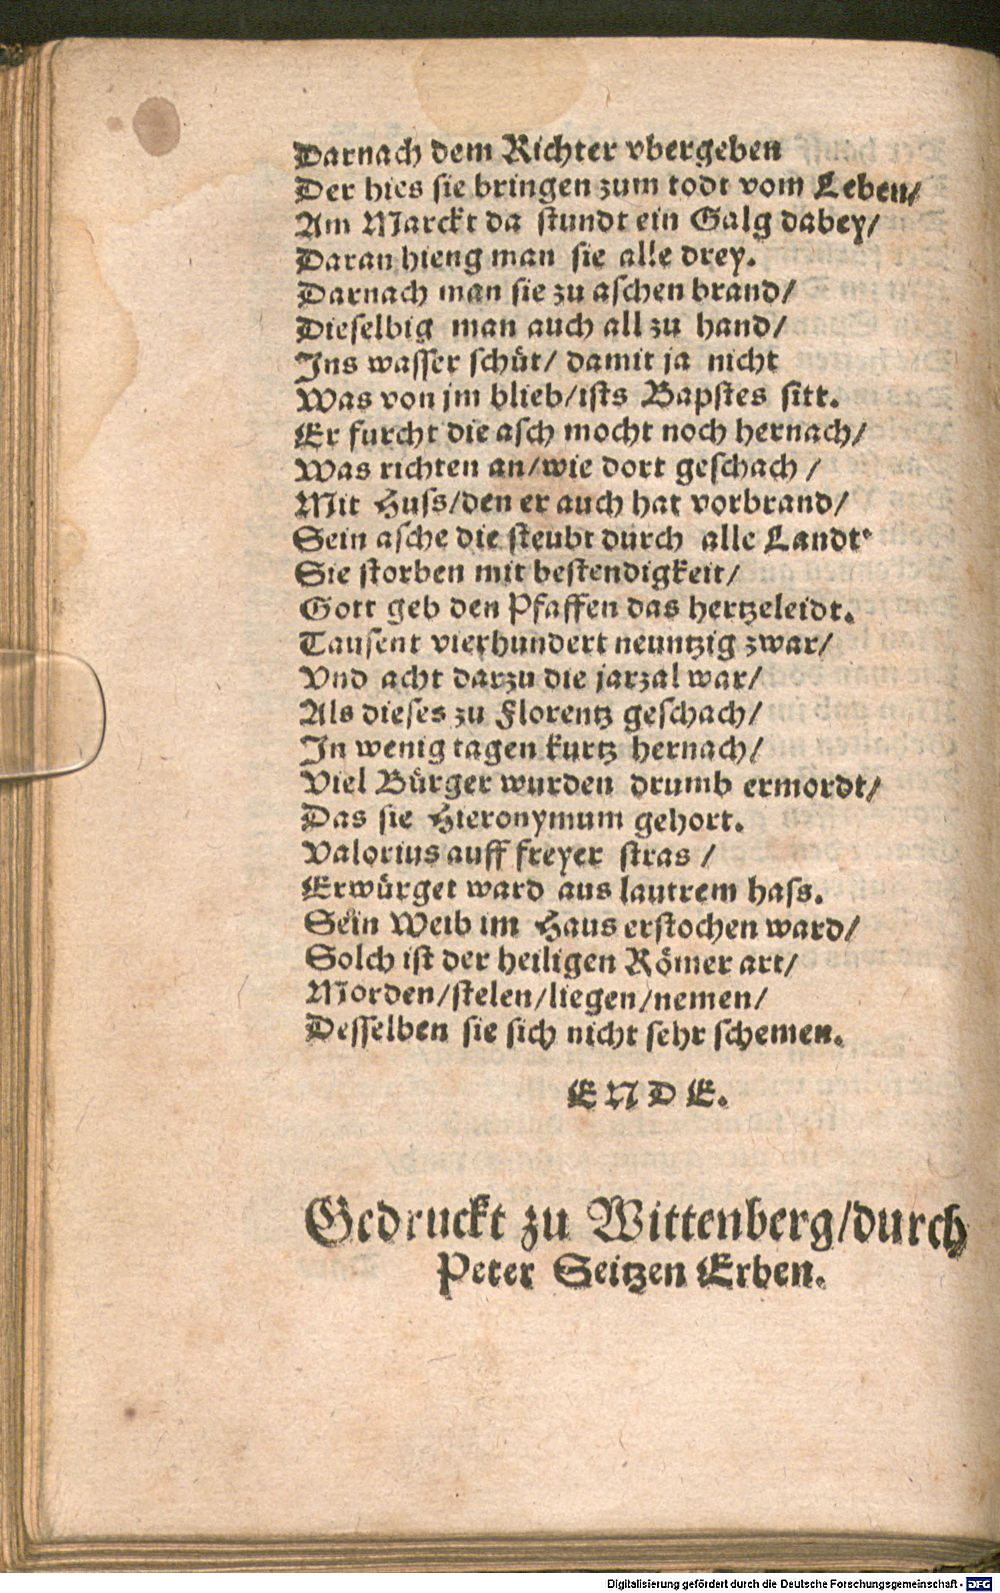 Darnach dem Richter vbergeben
Der hies sie bringen zum todt vom Leben/
Am Marckt da stundt ein Galg dabey/
Daran hieng man sie alle drey.
Darnach man sie zu aschen brand/
Dieselbig man auch all zu hand/
Ins wasser schüt/ damit ja nicht
Was von jm blieb/ists Bapstes sitt.
Er furcht die asch mocht noch hernach/
Was richten an/wie dort geschach/
Mit Huss/den er auch hat vorbrand/
Sein asche die steubt durch alle Landt.
Sie storben mit bestendigkeit/
Gott geb den Pfaffen das hertzeleidt.
Tausent vierhundert neuntzig zwar/
Vnd acht darzu die jarzal war/
Als dieses zu Florentz geschach/
In wenig tagen kurtz hernach/
Viel Bürger wurden drumb ermordt/
Das sie Hieronymum gehort.
Valorius auff freyer stras/
Erwürget ward aus lautrem hass.
Sein Weib im Haus erstochen ward/
Solch ist der heiligen Römer art/
Morden/stelen/liegen/nemen/
Desselben sie sich nicht sehr schemen.
ENDE.
Gedruckt zu Wittenberg/durch
Peter Seitzen Erben.
Digitalisierung gefördert durch die Deutsche Forschungsgemeinschaft - DFG